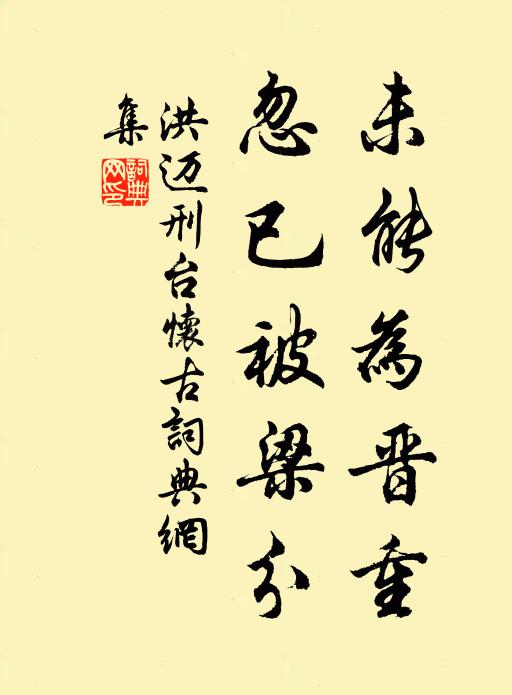 未能為晋重
忽已被梁分
洪迈刑台懷古詞典網
集
詞典
网印